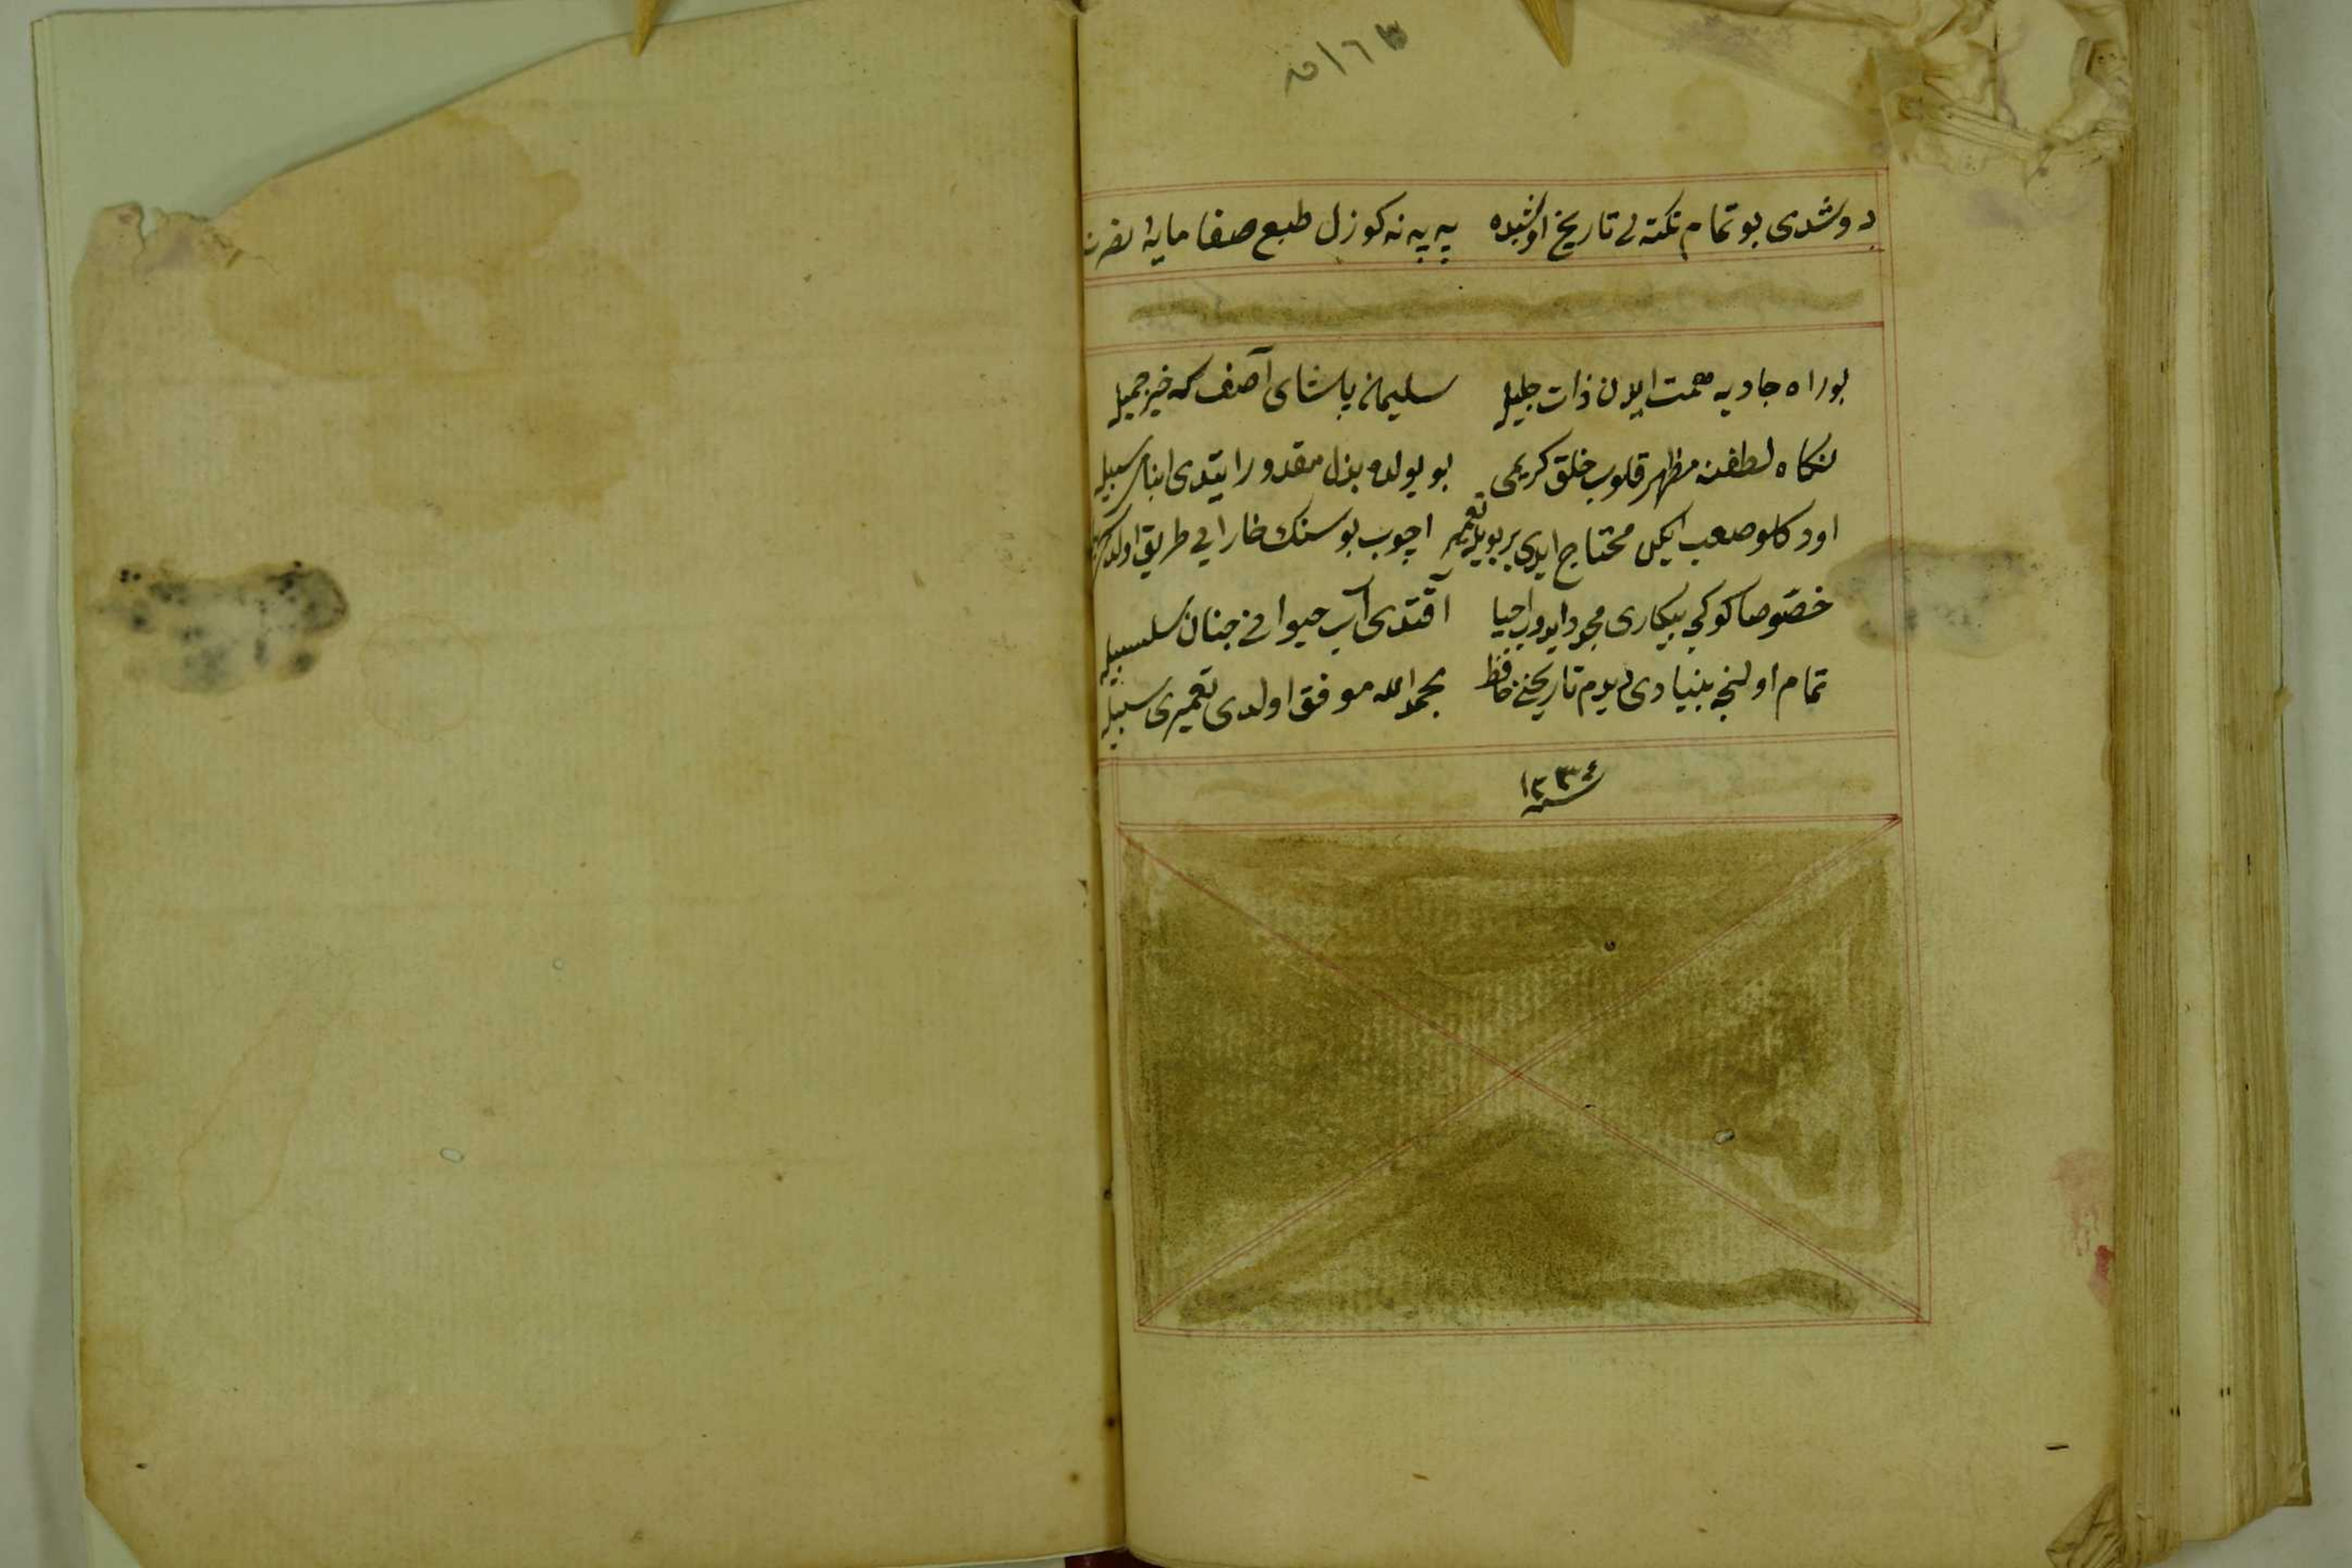 دوشدی بو تمام نکته لی تاریخ اونشیده په په نه کوزل طبع صفا مایه نصرت
بو راه جادیه همت ایلدن ذات جلیل سلیمان پاشای آصف که خیر جمیل
نکاه لطفنه مظهر قلوب خلق کریمی بو یولده بذل مقدور ایتدی ابناء سبیل
صعب ایکن محتاج ایدی بر بویله تعمیره اچوب بو سنک خارایی طریق اولدی
خصوصا کوکجی بیکاری مجرد ایدوب احیا آقتدی آب حیوانی جنان سلسبیل
تمام اولنجه بنیادی دیدم تاریخنی حافظ بحمد الله موفق اولدی تعمیری سبیل
سنه ١٢٣٤